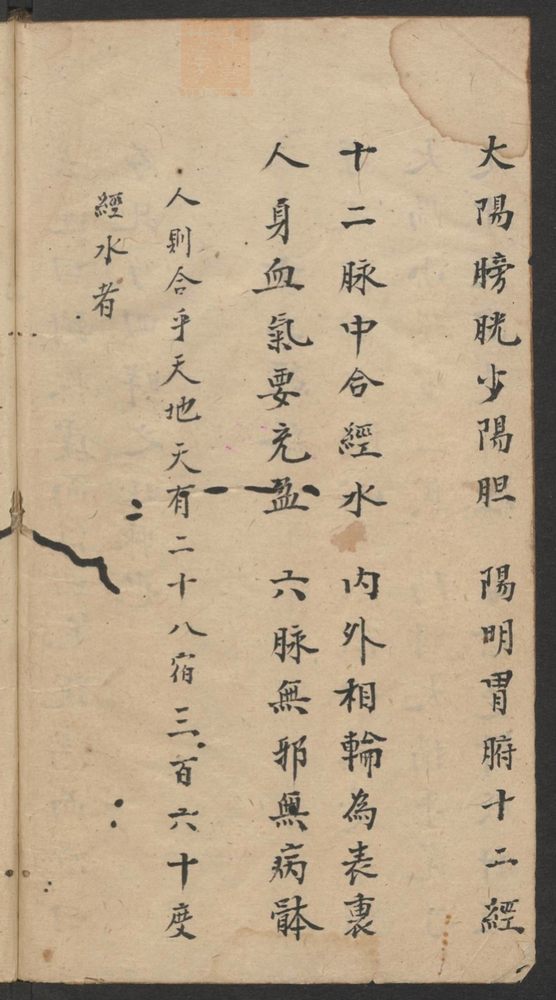 大陽膀胱少陽胆　陽明胃腑十二經
十二脉中合經水　内外相輪為表裏
人身血氣要充盈　六脉無邪無病骵
人則合乎天地天有二十八宿三百六十度
經水者